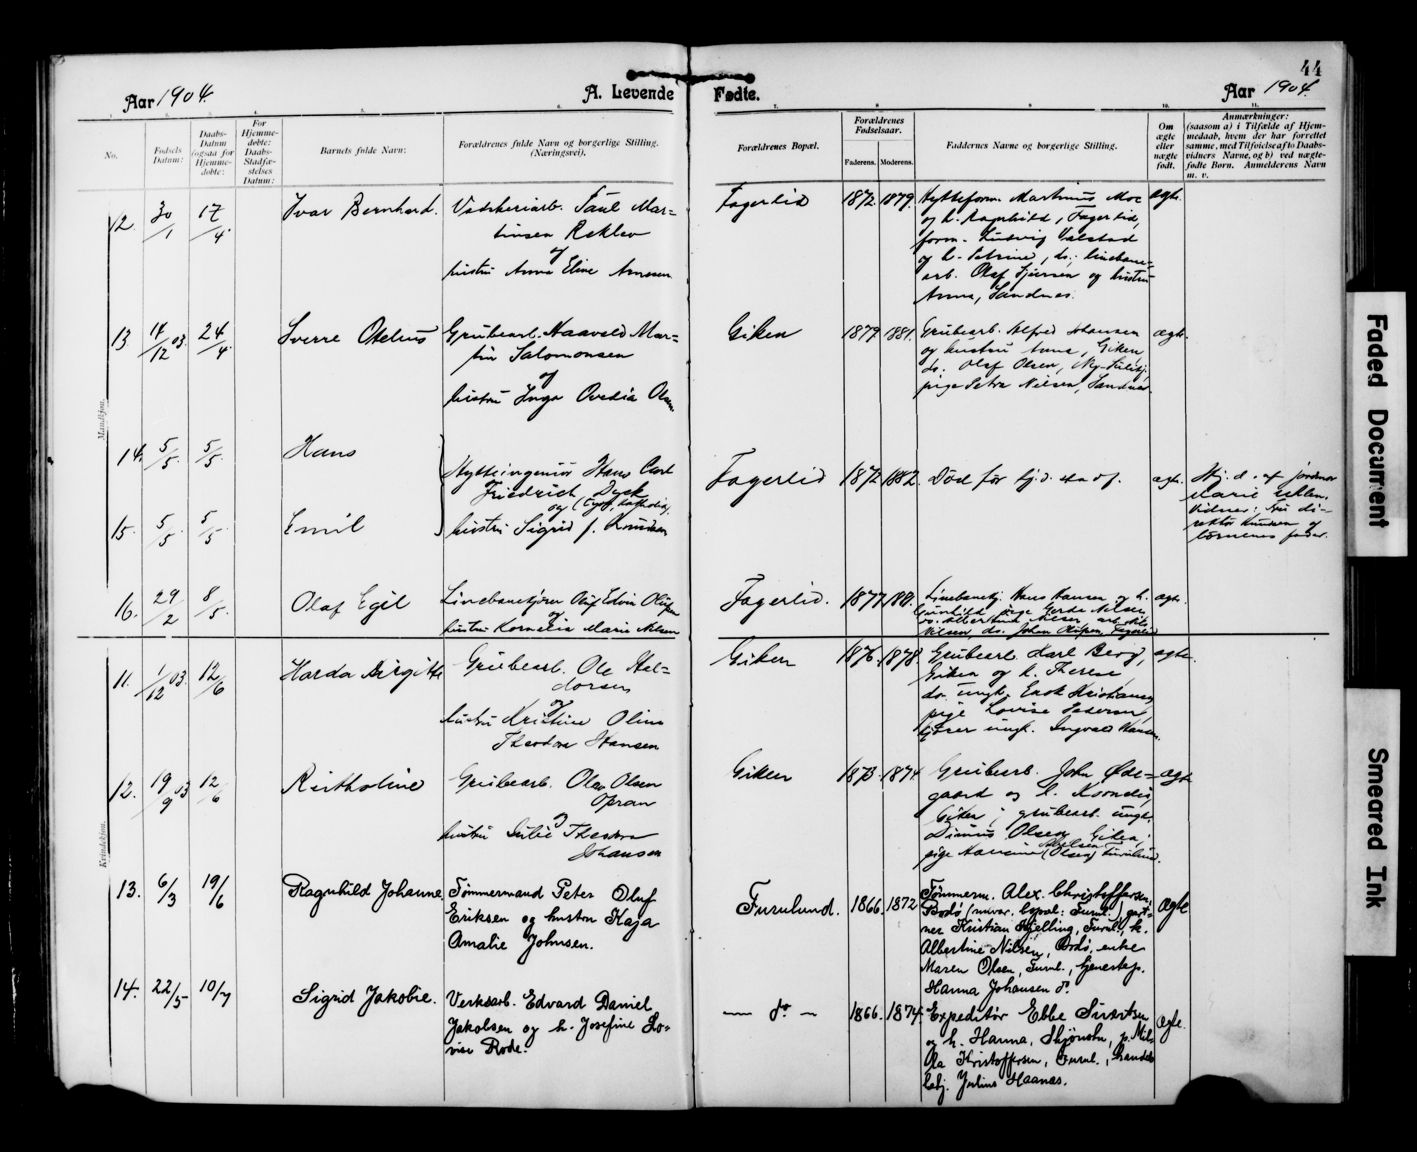 44
Aar 1904.
A. Levende
Fødte.
Aar 1904.
1.
2.
3.
4.
5.
6.
7.
8.
9.
10.
11.
No.
Fødsels
Datum:
Daabs-
Datum
(ogsaa for
Hjemme-
døbte:
For
Hjemme-
døbte:
Daabs-
Stadfæ-
stelses
Datum:
Barnets fulde Navn:
Forældrenes fulde Navn og borgerlige Stilling.
(Næringsvei).
Forældrenes Bopæl.
Forældrenes
Fødselsaar.
Faderens.
Moderens.
Faddernes Navne og borgerlige Stilling.
Om
ægte
eller
uægte
født.
Anmærkninger:
(saasom a) i Tilfælde af Hjem-
medaab, hvem der har forrettet
samme, med Tilføielse af to Daabs-
vidners Navne, og b) ved uægte-
fødte Børn. Anmelderens Navn
m. v.
Mandkjøn.
12. 30/1 17/4. Ivar Bernhard.
Paul Mar-
tinsen
hustru Anna Eline
Fagerlid 1872 1879.
Martinus Moe
og h. Ragnhild, Fagerlid,
form. Ludvig
og h. Petrine, ds.;
arb. Olaf og hustru
Anna, Sandnes.
ægte.
13 14/12 03. 24/4. Sverre
Grubearb. Haavald Mar-
tin Salomonsen
og
hustru Inga Ovedia Olsen.
Giken 1879. 1881.
Grubearb. Alfred Johansen
og hustru Anna, Giken,
ds. Olaf Olsen,
pige Petra Nilsen, Sandnes.
ægte.
14. 5/5. 5/5. Hans
15. 5/5. 5/5. Emil
Hytteingeniør Hans Carl
Friedrich Dyck
hustru Sigrid f. Knudsen
Fagerlid 1872 1882. Død før hj.d. ægte.
Hj. d. af jordmor
Marie
Vidner:
rektør Knudsen og
børnenes fader.
16. 29/2 8/5. Olaf Egil
Linebanekjører Oluf Edvin Olufsen
og
hustru Kornelia Marie Nilsen
Fagerlid. 1877.
Hans Hansen og h.
ds. Johan Olufsen, Fagerlid
ægte.
Kvindekjøn.
11. 1/12 03. 12/6 Harda Birgitte
Grubearb. Ole Hal-
dorsen
og
hustru Kristine Oline
Theodora Hansen
Giken 1876. 1878.
Grubearb. Karl Berg,
Giken og h. Therese,
ds. ungk. Enok Kristiansen,
pige Lovise Pedersen,
kjører ungk. Ingvald Hansen.
ægte.
12. 19/9 03 12/6
Grubearb. Ole Olsen
og
hustru Julie Theodora
Johansen
Giken 1873. 1874.
Grubearb. John Øde-
gaard og h. Kornelia,
Giken; grubearb. ungk.
Dinius Olsen, Giken;
pige (Olsen) Furulund.
ægte
13. 6/3 19/6 Ragnhild Johanne.
Tømmermand Peter Oluf
Eriksen og hustru Kaja
Amalie Johnsen.
Furulund. 1866. 1872
Tømmerm. Alex. Christoffersen,
Bodø (nuvær. bopæl: Furul.) gart-
ner Kristian Kjelling, Furul., h.
Albertine Nilsen, Bodø, enke
Maren Olsen, Furul., tjenestep.
Hanna Johansen do.
Ægte
14. 22/5 10/7 Sigrid Jakobie.
Verksarb. Edvard Daniel
Jakobsen og h. Josefine Lo-
vise Rode.
— do. — 1866. 1874.
Expeditør Ebbe Sivertsen
og h. Hanna, Skjønstu, p. Mil-
da Kristoffersen, Furul., handels-
betj. Julius Haanes.
Ægte.
Faded Document
Smeared Ink